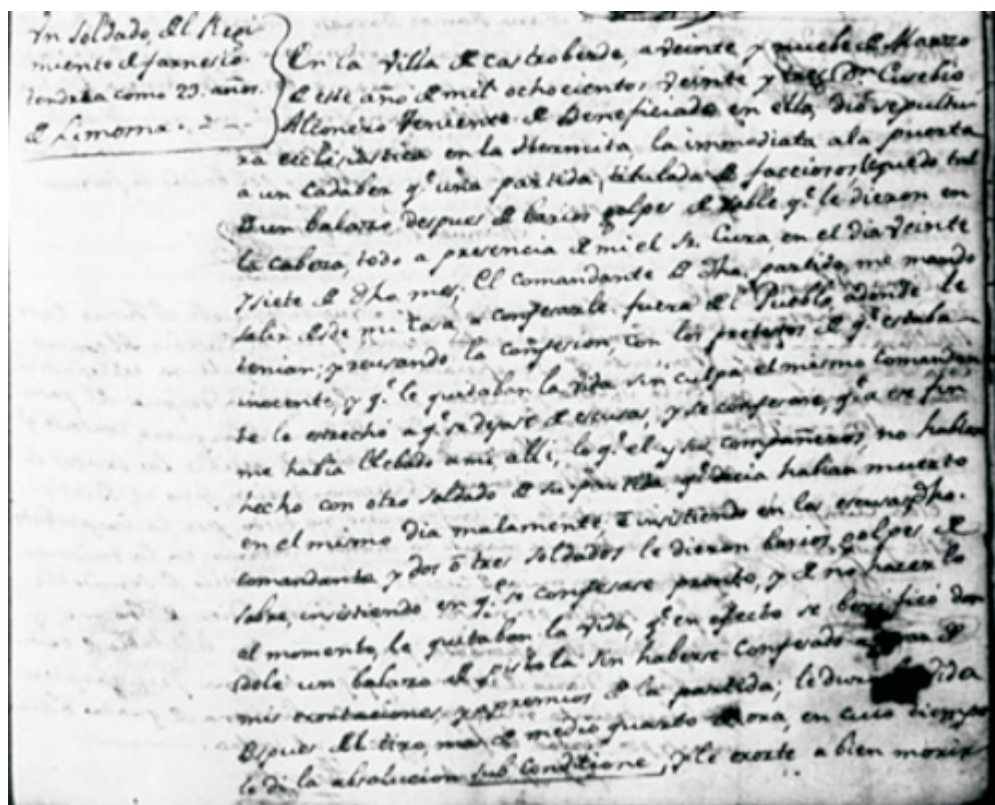 Vn Soldado, del Regi
miento de farnesio
tendria como 23. años.
de Limoma.
En la Villa de Castroberde, a veinte y nuebe de Marzo
de este año de mil ochocientos veinte y tres Dn. Eusebio
Alconero Theniente de Beneficiado en ella, dió sepultu
ra eclesiastica en la Hermita, la immediata a la puerta
a un cadaber qe. una partida, titulada de facciosos
bien balazo, despues de barios golpes de sable qe. le dieron en
la cabeza, todo a presencia de mi el Sr. Cura, en el dia veinte
y siete de dho mes; El comandante de dha. partida, me mando
salir desde mi casa, a confesarle fuera del Pueblo, adonde le
tenian; y reusando la confesion, con los pretestos de qe. estaba
inocente, y qe. le quitaban la vida sin culpa, el mismo comandan
te le estrechó a qe. se dejase de escusas, y se confesase, qe. a ese fin
me habia llebado a mi, alli, lo qe. el y sus compañeros, no habian
hecho con otro soldado de su partida, qe. decia habian muerto
en el mismo dia malamente e insistiendo en las escusas dho.
comandante y dos ó tres soldados le dieron barios golpes de
sable, insistiendo en qe. se confesase pronto, y de no hacerlo
al momento, le quitaban la vida, qe. en efecto se berificó dan
dole un balazo de pistola sin haberse confesado
mis exortaciones, y apremios de la partida; le vida
despues del tiro, mas de medio quarto de ora, en cuio tiempo
le di la absolucion sub conditione, y le exorte a bien morir